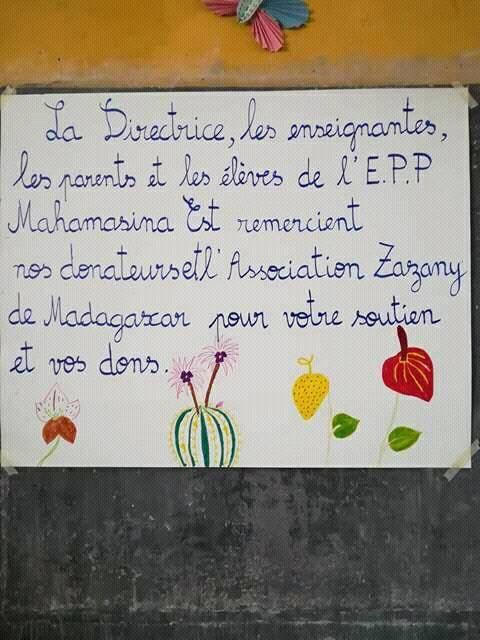 La Directrice, les enseignantes,
les parents et les élèves de l'E.P.P
Mahamasina Est remercient
nos donateurs et l'Association Zazany
de Madagascar pour votre soutien
et vos dons.